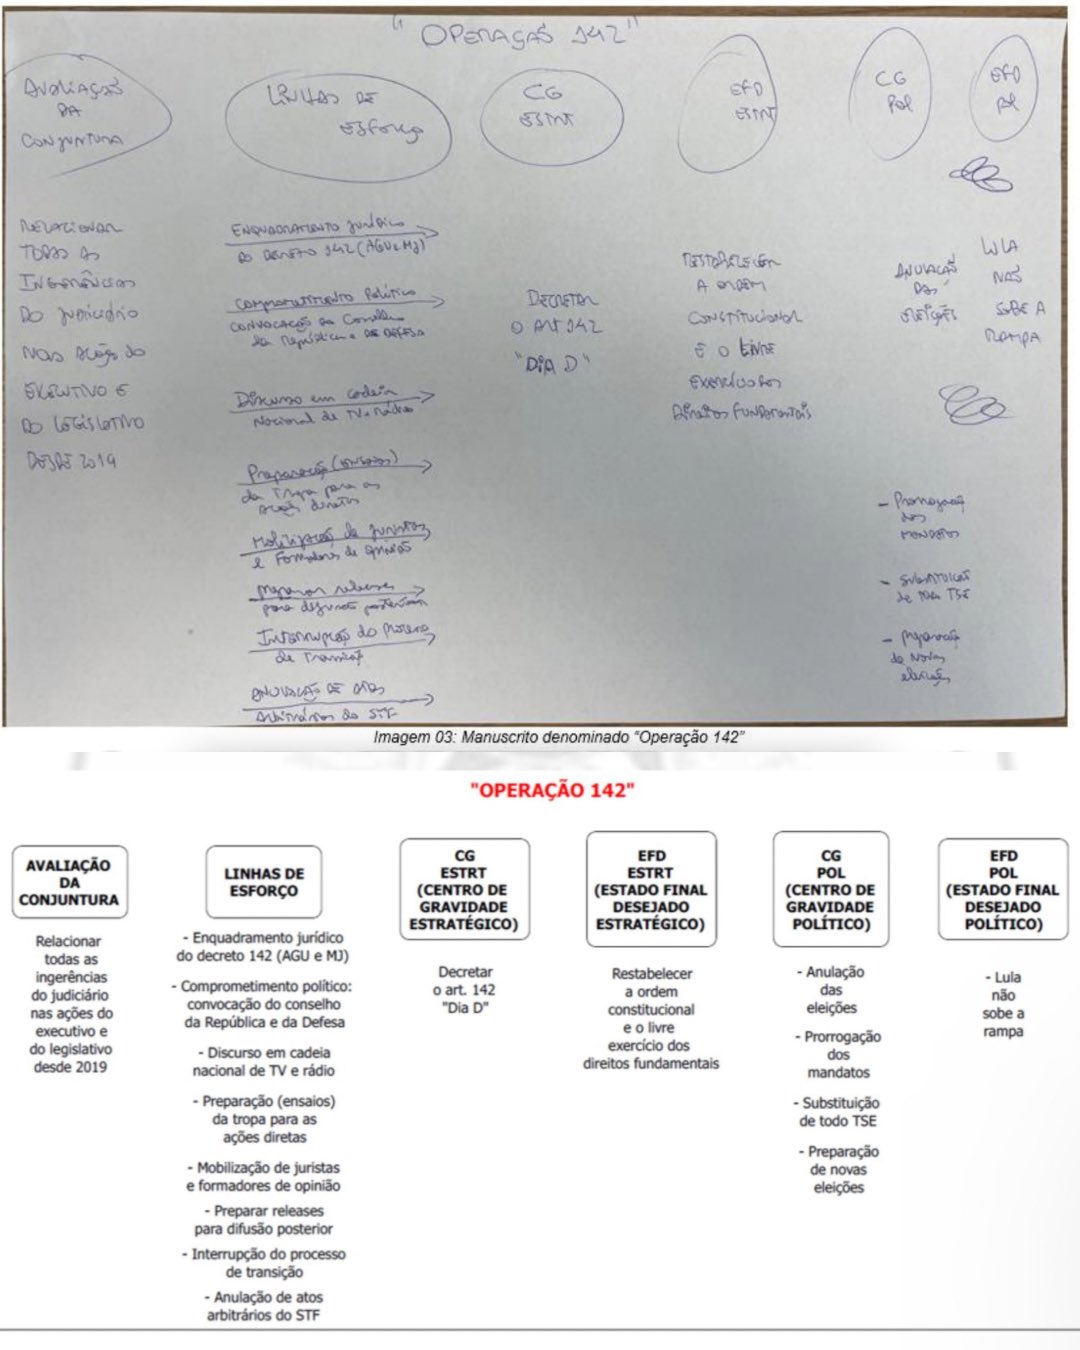 "OPERAÇÃO 142"
AVALIAÇÃO
DA
CONJUNTURA
LINHAS DE
ESFORÇO
CG
ESTRT
EFD
ESTRT
CG
POL
EFD
POL
RELACIONAR
TODAS AS
INGERÊNCIAS
DO JUDICIÁRIO
NAS AÇÕES DO
EXECUTIVO E
DO LEGISLATIVO
DESDE 2019
ENQUADRAMENTO JURÍDICO
DO DECRETO 142 (AGU e MJ)
COMPROMETIMENTO POLÍTICO
CONVOCAÇÃO DO CONSELHO
DA REPÚBLICA e DA DEFESA
Discurso em cadeia
Nacional de TV e rádio
Preparação (ENSAIOS)
da Tropa para as
ações diretas
Mobilização de juristas
e Formadores de opinião
Preparar releases
para difusão posterior
Interrupção do processo
de Transição
ANULAÇÃO DE ATOS
Arbitrários do STF
DECRETAR
O ART 142
"DIA D"
RESTABELECER
A ORDEM
CONSTITUCIONAL
E O LIVRE
EXERCÍCIO DOS
Direitos FUNDAMENTAIS
ANULAÇÃO
DAS
ELEIÇÕES
- Prorrogação
dos
MANDATOS
- SUBSTITUIÇÃO
de TODO TSE
- Preparação
de Novas
eleições
LULA
NÃO
SOBE A
RAMPA
Imagem 03: Manuscrito denominado "Operação 142"
"OPERAÇÃO 142"
AVALIAÇÃO
DA
CONJUNTURA
Relacionar
todas as
ingerências
do judiciário
nas ações do
executivo e
do legislativo
desde 2019
LINHAS DE
ESFORÇO
- Enquadramento jurídico
do decreto 142 (AGU e MJ)
- Comprometimento político:
convocação do conselho
da República e da Defesa
- Discurso em cadeia
nacional de TV e rádio
- Preparação (ensaios)
da tropa para as
ações diretas
- Mobilização de juristas
e formadores de opinião
- Preparar releases
para difusão posterior
- Interrupção do processo
de transição
- Anulação de atos
arbitrários do STF
CG
ESTRT
(CENTRO DE
GRAVIDADE
ESTRATÉGICO)
Decretar
o art. 142
"Dia D"
EFD
ESTRT
(ESTADO FINAL
DESEJADO
ESTRATÉGICO)
Restabelecer
a ordem
constitucional
e o livre
exercício dos
direitos fundamentais
CG
POL
(CENTRO DE
GRAVIDADE
POLÍTICO)
- Anulação
das
eleições
- Prorrogação
dos
mandatos
- Substituição
de todo TSE
- Preparação
de novas
eleições
EFD
POL
(ESTADO FINAL
DESEJADO
POLÍTICO)
- Lula
não
sobe a
rampa